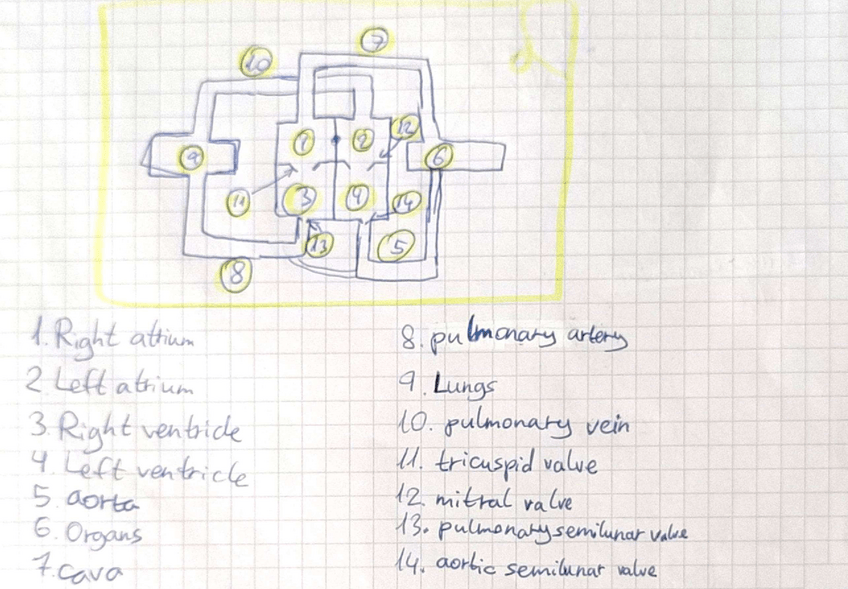 7
10
1
2
12
9
6
11
3
4
14
13
5
8
1. Right atrium
2 Left atrium
3 Right ventricle
4 Left ventricle
5 aorta
6 Organs
7. cava
8. pulmonary artery
9. Lungs
10. pulmonary vein
11. tricuspid valve
12. mitral valve
13. pulmonary semilunar valve
14. aortic semilunar valve